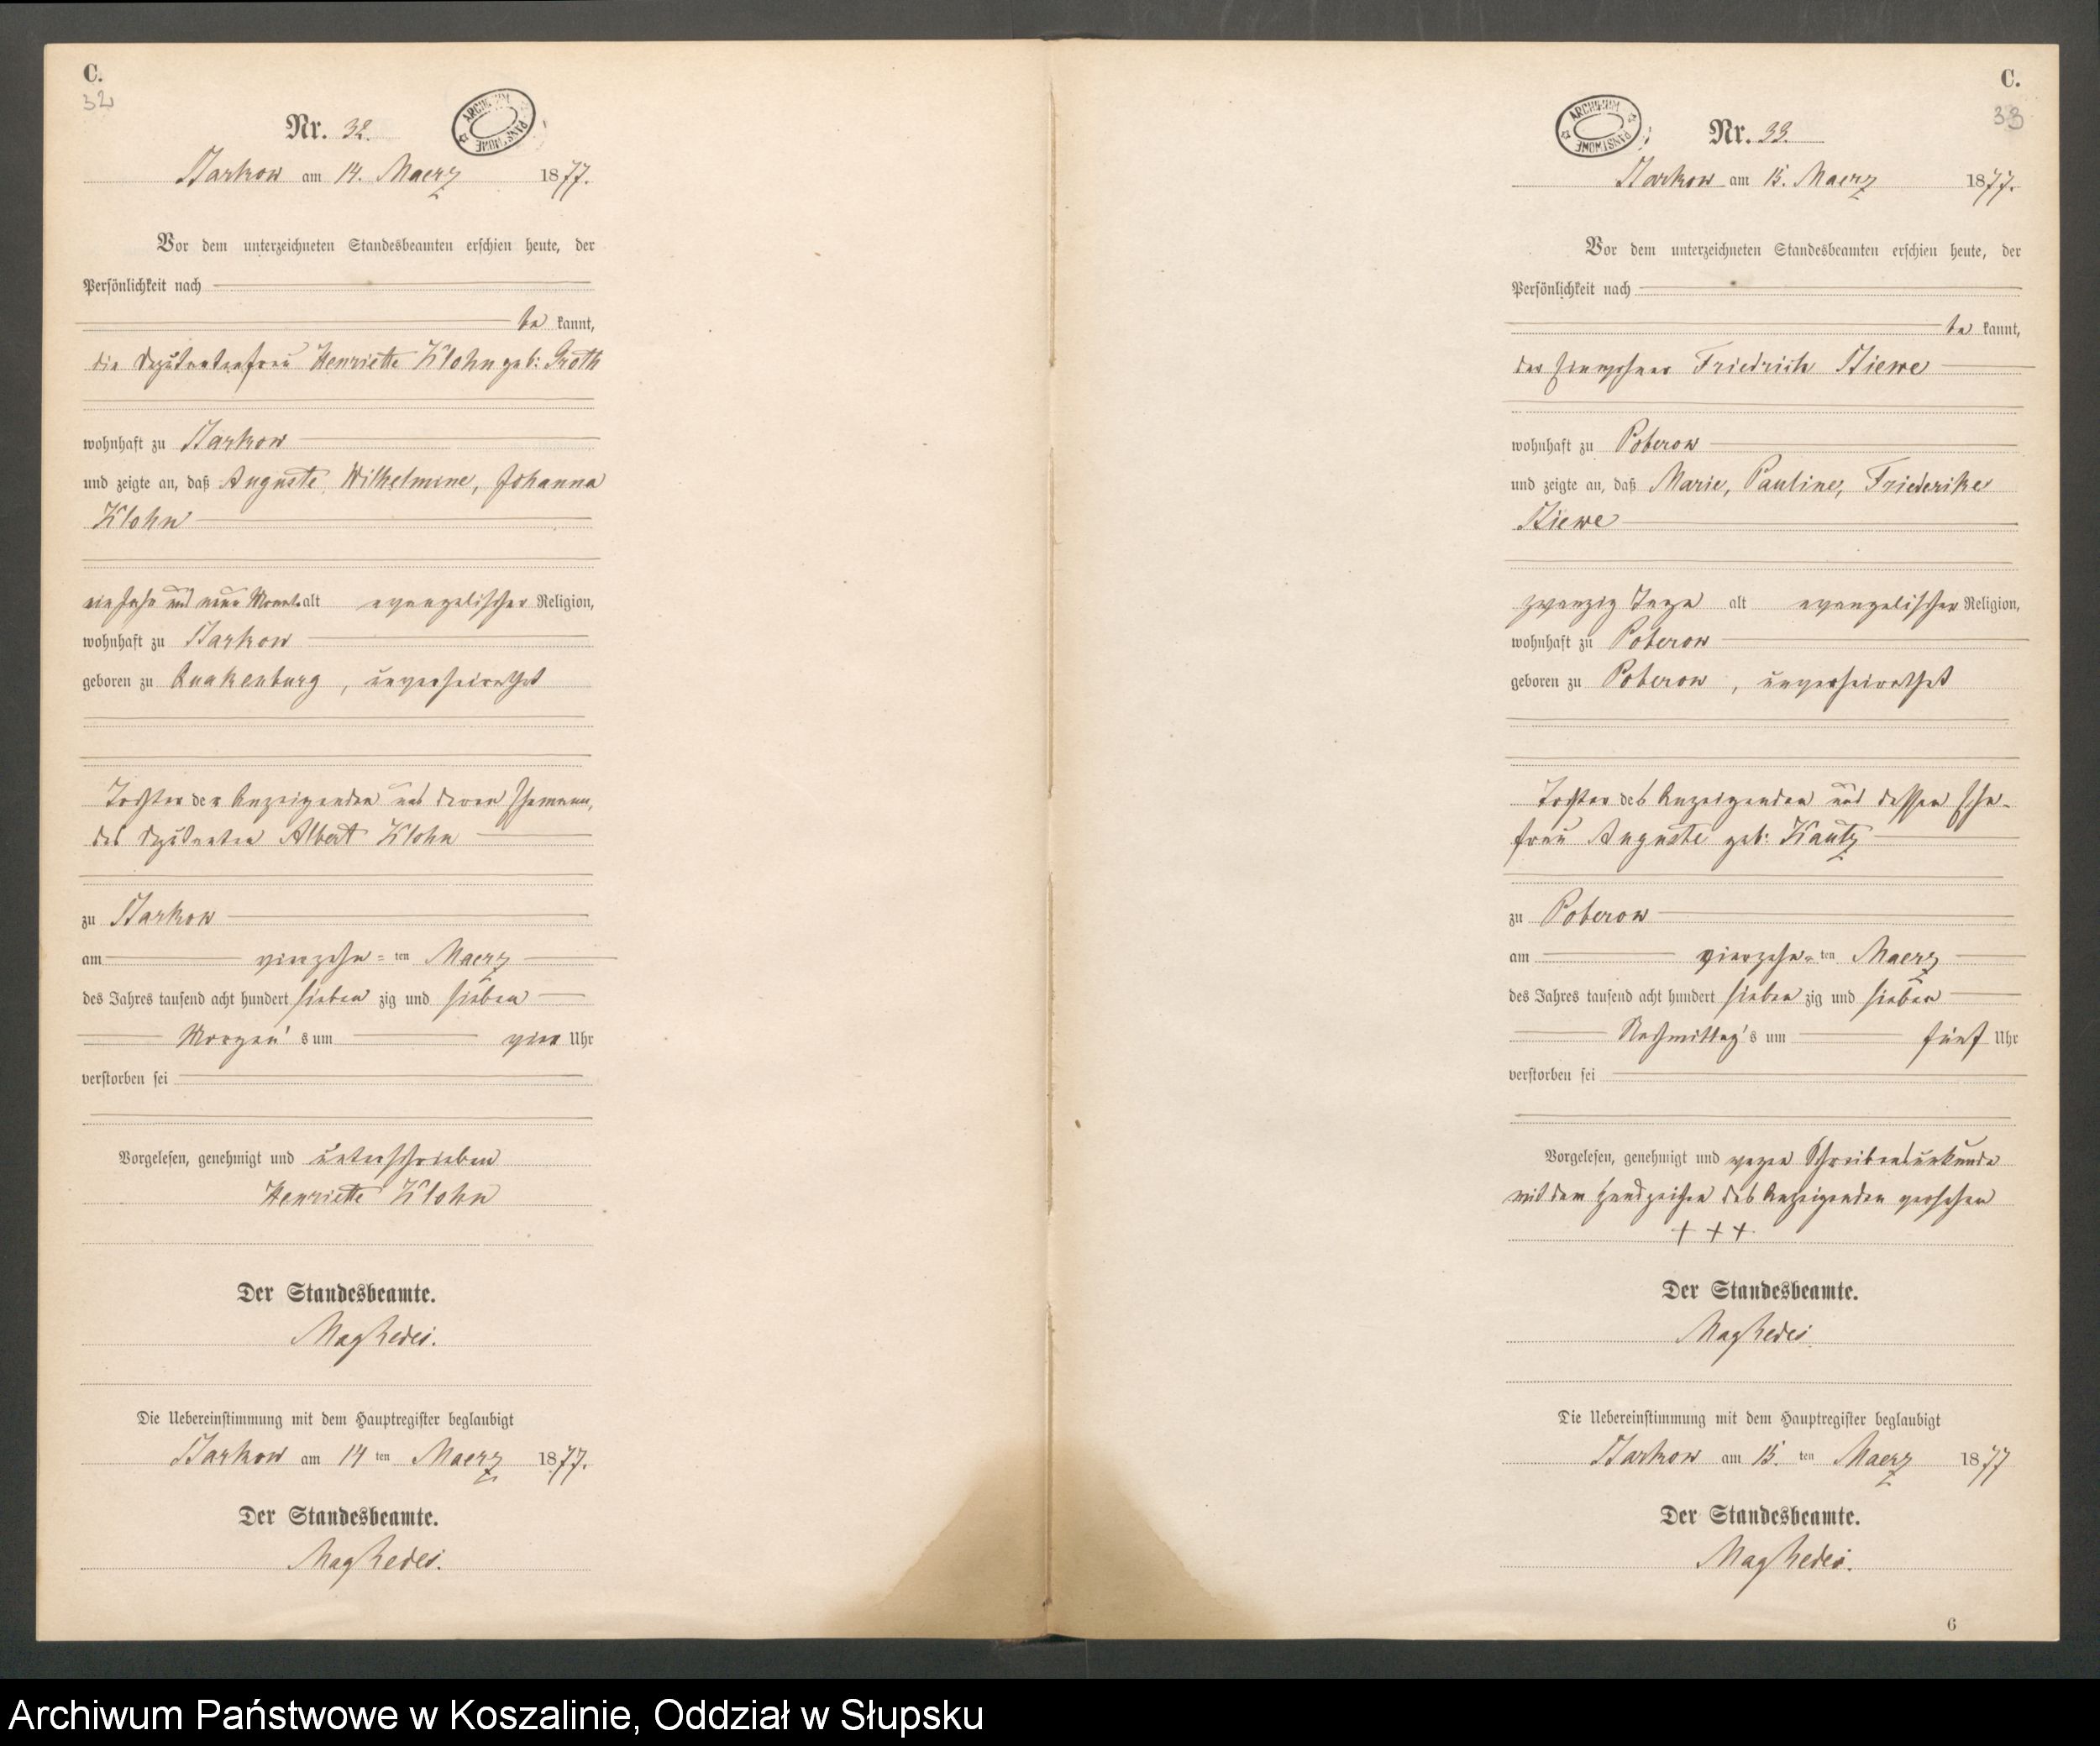 C.
32
Nr. 32.
ARCHIWUM PAŃSTWOWE
Starkow am 14. Maerz 1877.
Vor dem unterzeichneten Standesbeamten erschien heute, der
Persönlichkeit nach
be kannt,
die Deputantenfrau Henriette Klohn geb: Groth
wohnhaft zu Starkow
und zeigte an, daß Auguste, Wilhelmine, Johanna
Klohn
ein Jahr und neun Monat alt evangelischer Religion,
wohnhaft zu Starkow
geboren zu Quakenburg, unverheirathet
Tochter der Anzeigenden und deren Ehemann,
des Deputanten Albert Klohn
zu Starkow
am vierzehn=ten Maerz
des Jahres tausend acht hundert sieben zig und sieben
Morgen's um vier Uhr
verstorben sei
Vorgelesen, genehmigt und unterschrieben
Henriette Klohn
Der Standesbeamte.
Die Uebereinstimmung mit dem Hauptregister beglaubigt
Starkow am 14 ten Maerz 1877.
Der Standesbeamte.
C.
33
Nr. 33.
ARCHIWUM PAŃSTWOWE
Starkow am 15. Maerz 1877.
Vor dem unterzeichneten Standesbeamten erschien heute, der
Persönlichkeit nach
be kannt,
der Einwohner Friedrich Stiewe
wohnhaft zu Poberow
und zeigte an, daß Marie, Pauline, Friederike
Stiewe
zwanzig Tage alt evangelischer Religion,
wohnhaft zu Poberow
geboren zu Poberow, unverheirathet
Tochter des Anzeigenden und dessen Ehe-
frau Auguste geb: Kautz
zu Poberow
am vierzehn=ten Maerz
des Jahres tausend acht hundert sieben zig und sieben
Nachmittag's um fünf Uhr
verstorben sei
Vorgelesen, genehmigt und wegen Schreibensunkunde
mit dem Handzeichen des Anzeigenden versehen
+ + +
Der Standesbeamte.
Die Uebereinstimmung mit dem Hauptregister beglaubigt
Starkow am 15. ten Maerz 1877
Der Standesbeamte.
6
Archiwum Państwowe w Koszalinie, Oddział w Słupsku